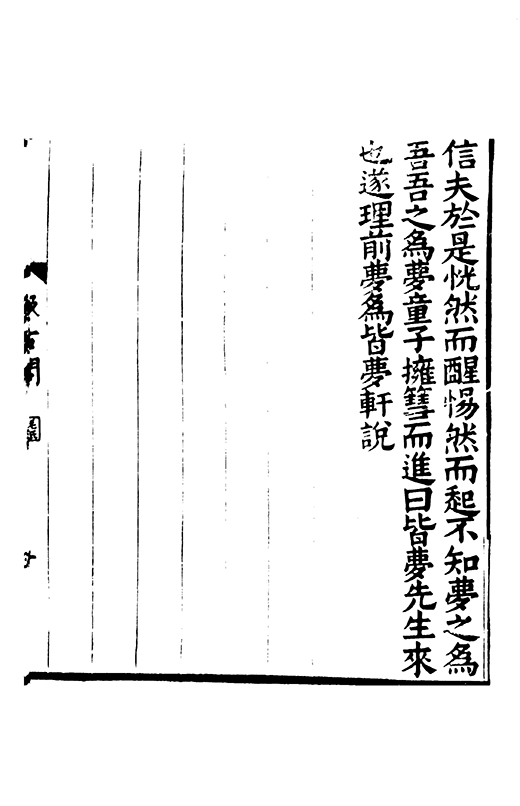 信夫於是恍然而醒惕然而起不知夢之為
吾吾之為夢童子擁篲而進曰皆夢先生來
也遂理前夢為皆夢軒說